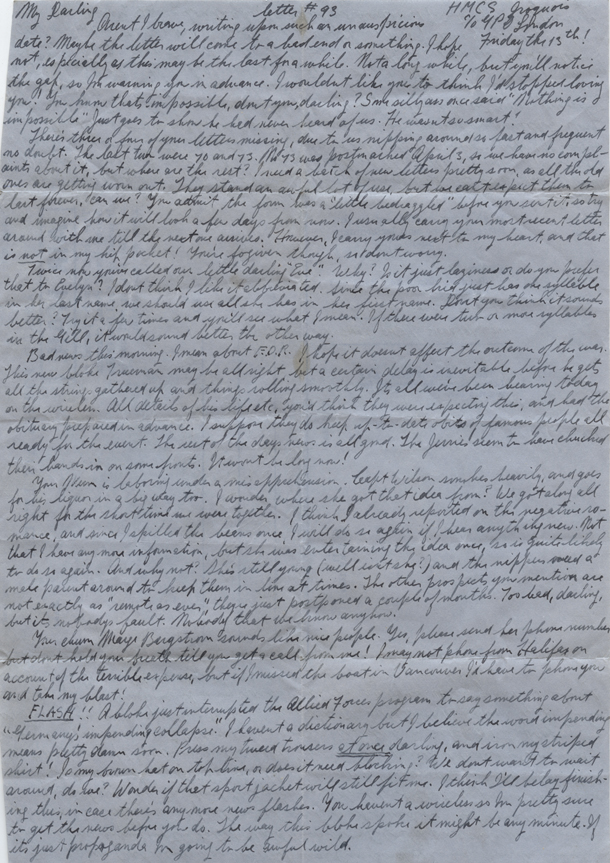 My Darling letter # 93 HMCS Iroquois
℅ GPO London
Arent I brave, writing upon such an unauspicious Friday the 13th!
date? Maybe the letter will come to a bad end or something. I hope
not, especially as this may be the last for a while. Not a long while, but you will notice
the gap, so I'm warning you in advance. I wouldn't like you to think I'd stopped loving
you! You know that's impossible, don't you, darling? Some silly ass once said "Nothing is
impossible". Just goes to show he had never heard of us. He wasn't so smart!
There's three or four of your letters missing, due to us nipping around so fast and frequent
no doubt. The last two were 70 and 73. No 73 was postmarked April 3, so we have no compl-
aints about it, but where are the rest? I need a batch of new letters pretty soon, as all the old
ones are getting worn out. They stand an awful lot of use, but we can't expect them to
last forever, can we? You admit the form was a "little bedraggled" before you sent it, so try
and imagine how it will look a few days from now. I usually carry your most recent letter
around with me till the next one arrives. However, I carry yours next to my heart, and that
is not in my hip pocket! You're forgiven though, so don't worry.
Twice now you've called our little darling "Eve". Why? Is it just laziness or do you prefer
that to Evelyn? I dont think I like it abbreviated. Since the poor kid just has one syllable
in her last name we should use all she has in her first name. Don't you think it sounds
better? Try it a few times and you'll see what I mean. If there were two or more syllables
in the Gill, it would sound better the other way.
Bad news this morning. I mean about F.D.R. I hope it doesnt affect the outcome of the war.
This new bloke Trueman may be all right but a certain delay is inevitable before he gets
all the strings gathered up and things rolling smoothly. It's all we've been hearing today
on the wireless. All details of his life etc, you'd think they were expecting this, and had the
obituary prepared in advance. I suppose they do keep up-to-date obits of famous people all
ready for the event. The rest of the days news is all good. The Jerries seem to have chucked
their hands in on some fronts. It wont be long now!
Your Mum is laboring under a misapprehension. Capt Wilson smokes heavily, and goes
for his liquor in a big way too. I wonder where she got that idea from? We got along all
right for the short time we were together. I think I already reported on this negative ro-
mance, and since I spilled the beans once I will do so again if I hear anything new. Not
that I have any more information, but she was entertaining the idea once, so is quite likely
to do so again. And why not? She's still young (well isn't she?) and the nippers need a
male parent around to keep them in line at times. The other prospects you mention are
not exactly as "remote as ever," they're just postponed a couple of months. Too bad, darling,
but it's nobody's fault. Nobody that we know anyhow.
Your chum Marge Bergstrom sounds like nice people. Yes, please send her phone number
but dont hold your breath till you get a call from me! I may not phone from Halifax on
account of the terrible expense, but if I missed the boat in Vancouver I'd have to phone you
and take my blast!
FLASH!! A bloke just interrupted the Allied Forces program to say something about
"Germany's impending collapse". I havent a dictionary but I believe the word impending
means pretty damn soon. Press my tweed trousers at once darling, and iron my striped
shirt! Is my brown hat on top time, or does it need blocking? We dont want to wait
around, do we? Wonder if that sport jacket will still fit me. I think I'll belay finish-
ing this, in case there's any more news flashes. You havent a wireless so I'm pretty sure
to get the news before you do. The way this bloke spoke it might be any minute. If
it's just propaganda I'm going to be awful wild.